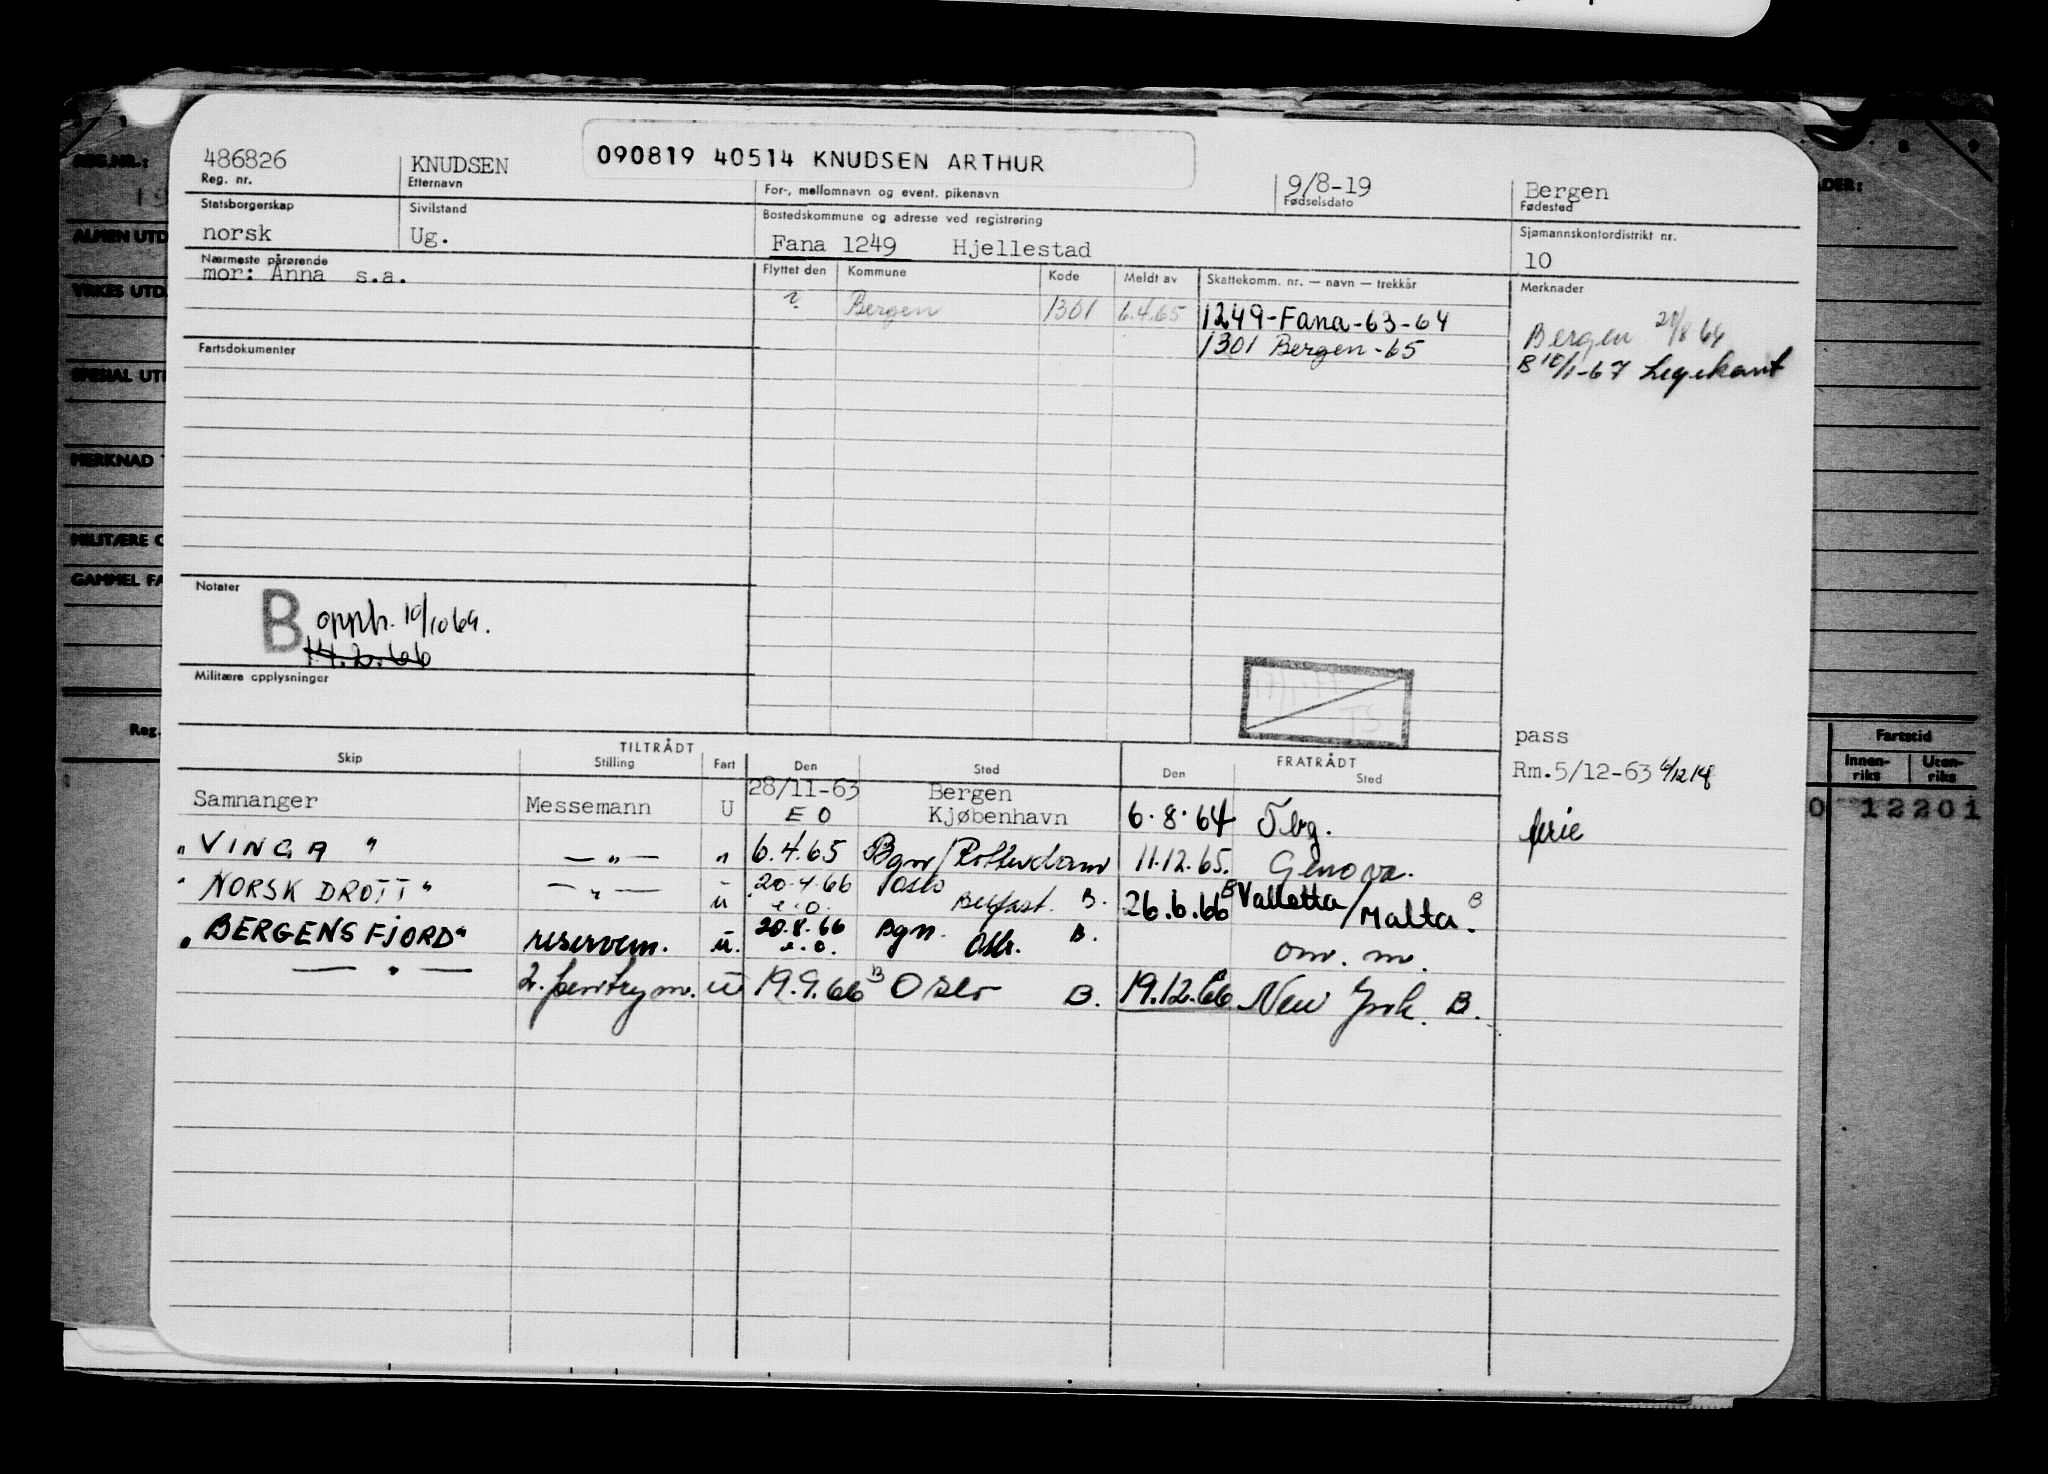 486826 KNUDSEN 090819 40514 KNUDSEN ARTHUR 9/8-19 Bergen
Reg. nr. Etternavn For-, mellomnavn og event. pikenavn Fødselsdato Fødested
Statsborgerskap Sivilstand Bostedskommune og adresse ved registrering Sjømannskontordistrikt nr.
norsk Ug. Fana 1249 Hjellestad 10
Nærmeste pårørende Flyttet den Kommune Kode Meldt av Skattekomm. nr. — navn — trekkår Merknader
mor: Anna s.a.
? Bergen 1301 6.4.65 1249-Fana-63-64 Bergen 64
1301 Bergen-65 B 10/1-67 Legekant
Fartsdokumenter
Notater
B opph. 10/10 64.
14.2.66
Militære opplysninger
TS
pass
Rm.5/12-63 6/12 14
TILTRÅDT FRATRÅDT
Skip Stilling Fart Den Sted Den Sted
Samnanger Messemann U 28/11-63 Bergen 6.8.64 Tbg. ferie
E O Kjøbenhavn
"VINGA" — " — " 6.4.65 Bgn/Rotterdam 11.12.65. Genova.
"NORSK DROTT" — " — u 20.4.66 Oslo 26.6.66 B Valletta/Malta. B
e.o. Belfast. B.
"BERGENSFJORD" reservem. u. 20.8.66 Bgn. B. om. m.
e.o. Oslo.
— " — 2. pentrym. u 19.9.66 B Oslo B. 19.12.66 New York. B.
REG.NR.:
ALMEN UTD
YRKES UTD.
SPESIAL UTD
MERKNAD
MILITÆRE O
GAMMEL FA
Reg.
ADER:
Fartstid
Innenriks Utenriks
0 12201